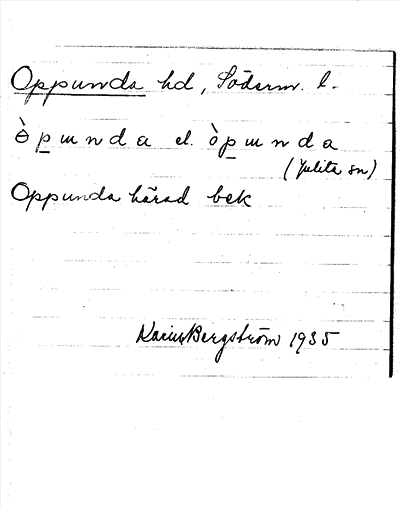 Oppunda hd, Söderm. l.
ɵ̀pɯnda el. òpɯnda
(Julita sn)
Oppunda härad bek
Karin Bergström 1935